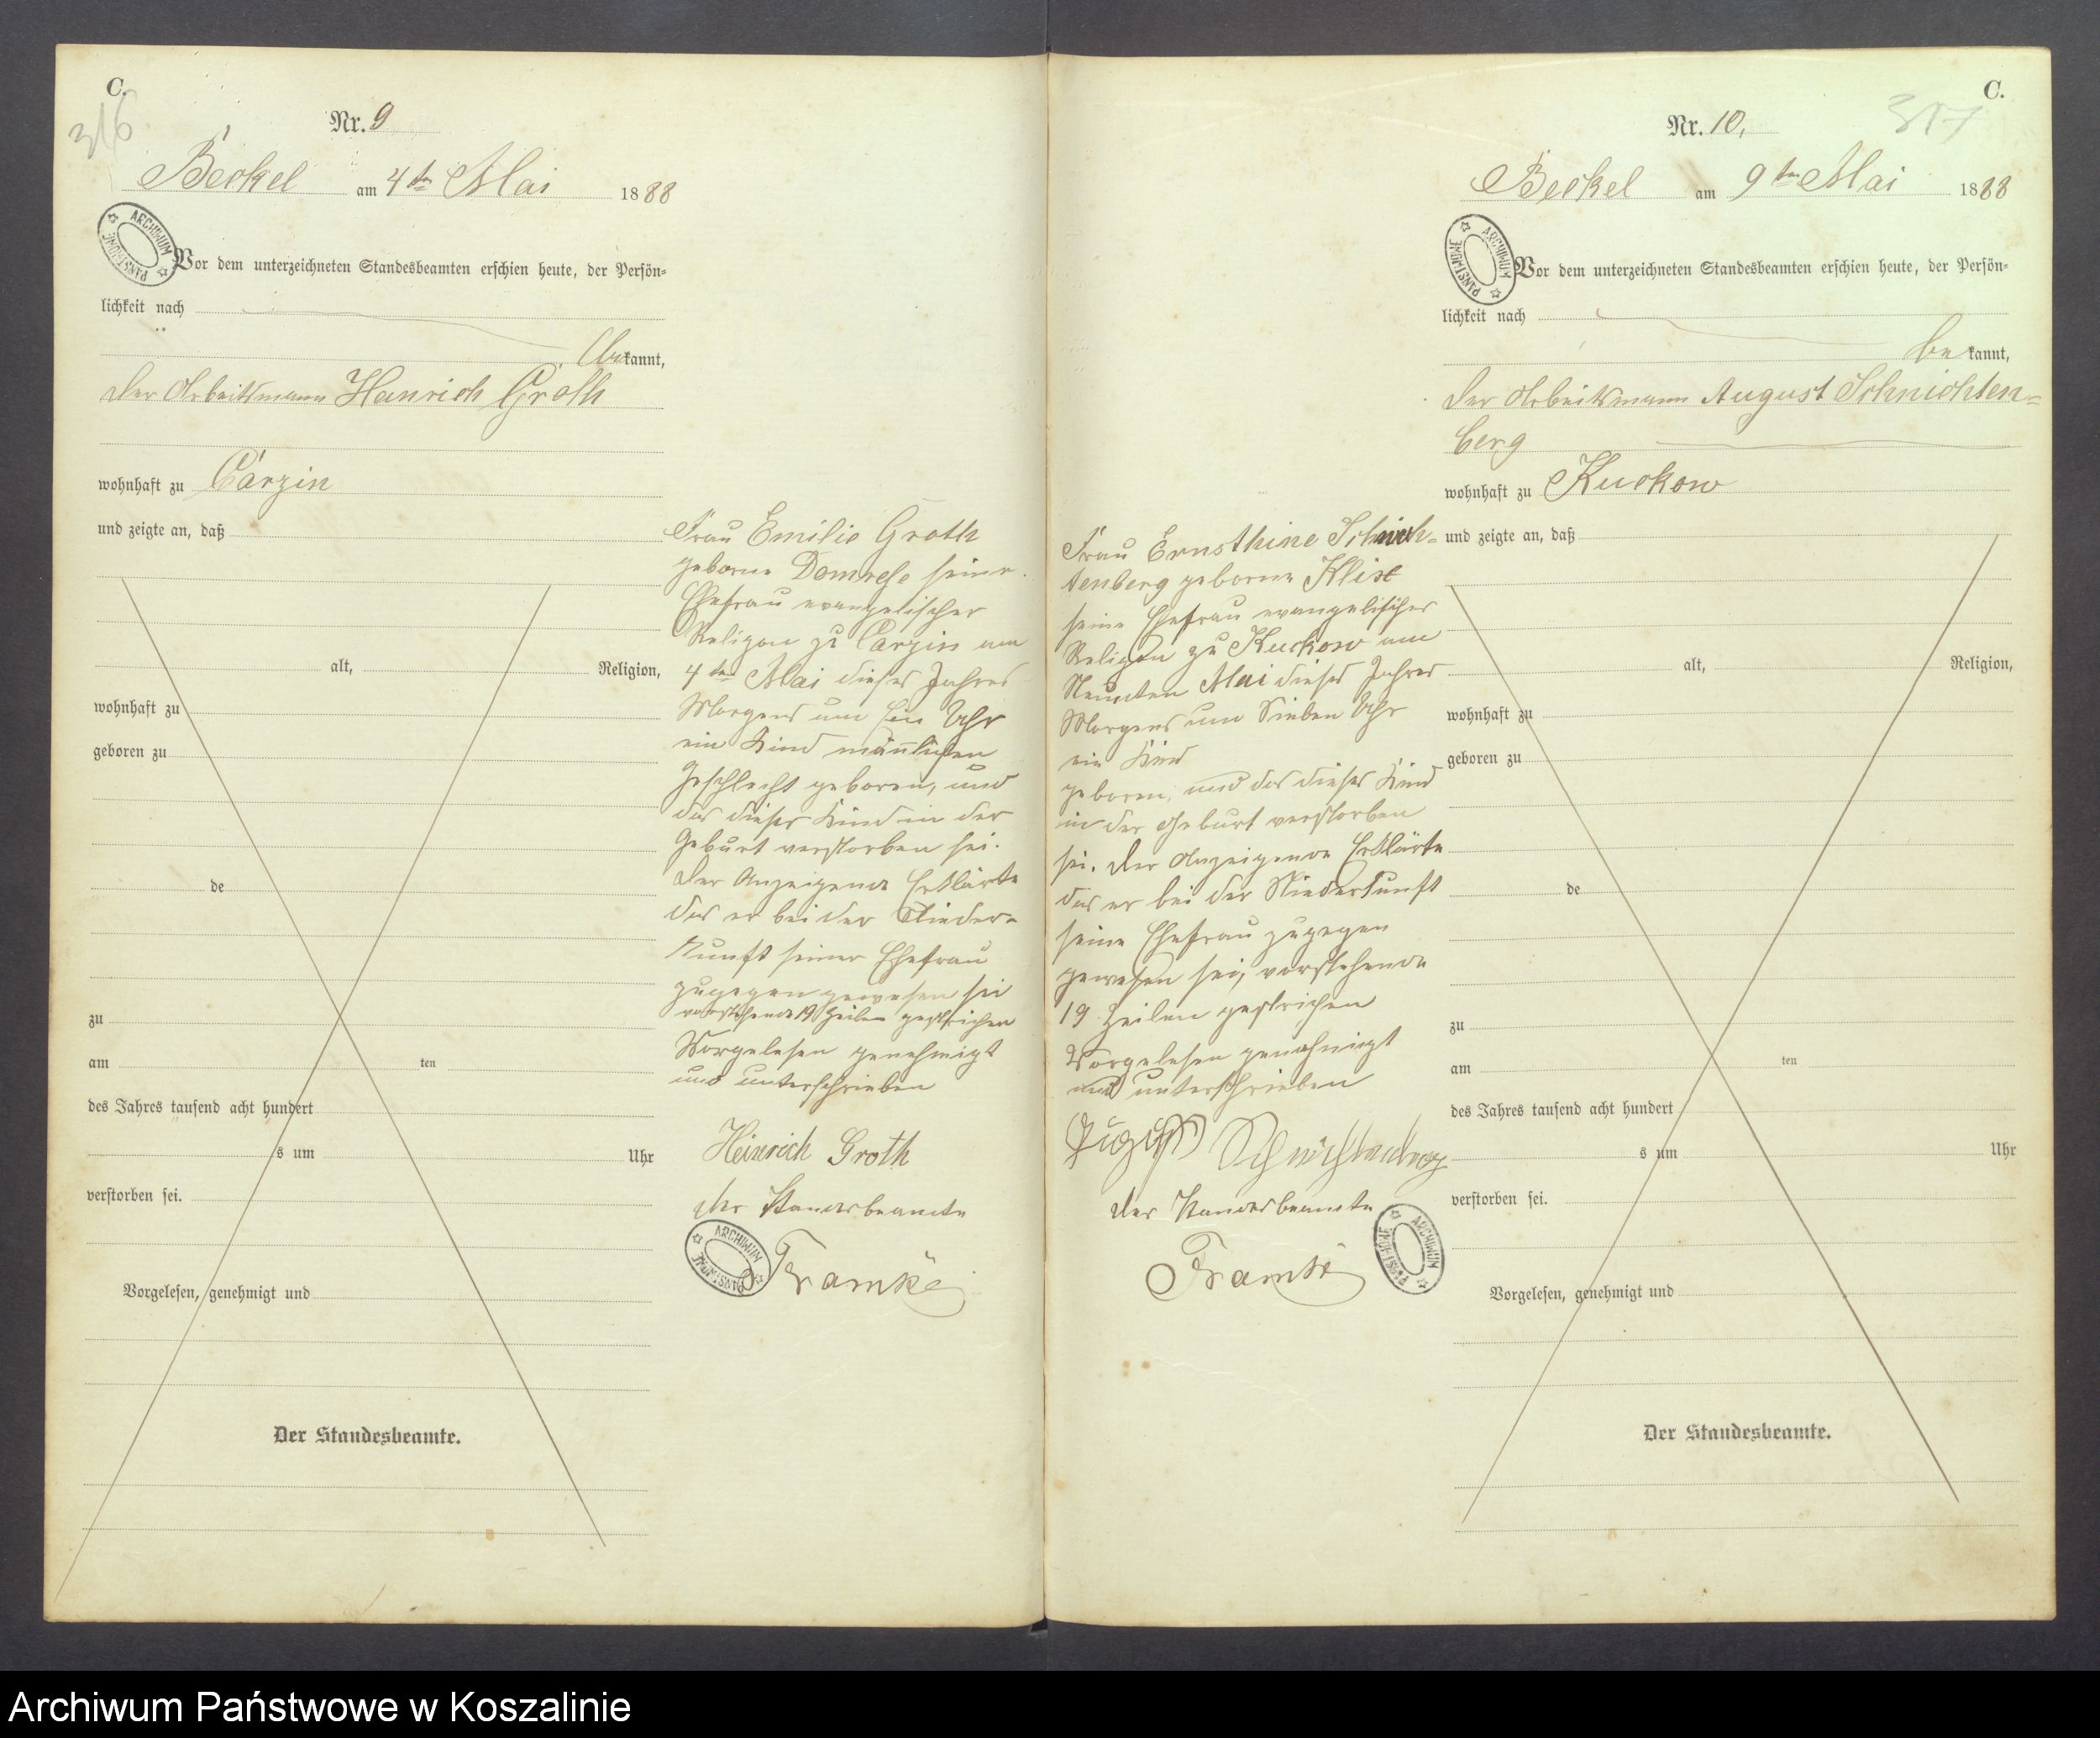 C.
316
Nr. 9
Beckel am 4ten Mai 1888
Vor dem unterzeichneten Standesbeamten erschien heute, der Persön-
lichkeit nach
be kannt,
der Arbeitsmann Heinrich Groth
wohnhaft zu Carzin
und zeigte an, daß
alt, Religion,
wohnhaft zu
geboren zu
de
zu
am ten
des Jahres tausend acht hundert
s um Uhr
verstorben sei.
Vorgelesen, genehmigt und
Der Standesbeamte.
Frau Emilie Groth
geborne Domrese seine
Ehefrau evangelischer
Religion zu Carzin am
4ten Mai dieses Jahres
Morgens um Ein Uhr
ein Kind männlichen
Geschlecht geboren, und
das dieses Kind in der
Geburt verstorben sei.
Der Anzeigende Erklärte
das er bei der Nieder-
kunft seiner Ehefrau
zugegen gewesen sei
vorstehende 19 Zeilen gestrichen
Vorgelesen genehmigt
und unterschrieben
Heinrich Groth
der Standesbeamte
Framke
ARCHIWUM PAŃSTWOWE
C.
317
Nr. 10.
Beckel am 9ten Mai 1888
Vor dem unterzeichneten Standesbeamten erschien heute, der Persön-
lichkeit nach
be kannt,
der Arbeitsmann August Schnichten-
berg
wohnhaft zu Kuckow
und zeigte an, daß
alt, Religion,
wohnhaft zu
geboren zu
de
zu
am ten
des Jahres tausend acht hundert
s um Uhr
verstorben sei.
Vorgelesen, genehmigt und
Der Standesbeamte.
Frau Ernsthine Schnich-
tenberg geborne
seine Ehefrau evangelischer
Religion zu Kuckow am
Neunten Mai dieses Jahres
Morgens um Sieben Uhr
ein Kind
geboren, und das dieses Kind
in der Geburt verstorben
sei. Der Anzeigende Erklärte
das er bei der Niederkunft
seine Ehefrau zugegen
gewesen sei, vorstehende
19 Zeilen gestrichen
Vorgelesen genehmigt
und unterschrieben
August Schnichtenberg
der Standesbeamte
Framke
ARCHIWUM PAŃSTWOWE
Archiwum Państwowe w Koszalinie